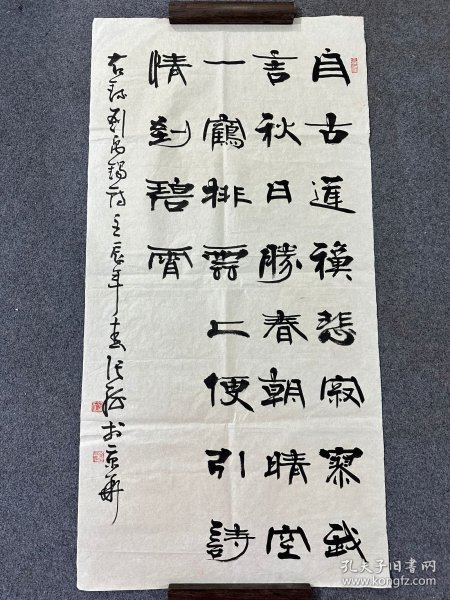 自古逢秋悲寂寥我
言秋日勝春朝晴空
一鶴排雲上便引詩
情到碧霄
右錄劉禹錫詩壬辰年春張於京華
孔夫子旧书网
www.kongfz.com